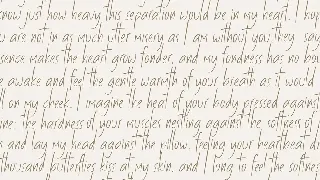 know just how heavy this separation would be in my heart. I hop
are not in as much utter misery as I am without you. They say
sence makes the heart grow fonder, and my fondness has no bou
e awake and feel the gentle warmth of your breath as it would
ll on my cheek. I imagine the heat of your body pressed against
ine; the hardness of your muscles nestling against the softness of
and lay my head against the pillow, feeling your heartbeat. A
thousand butterflies kiss at my skin, and I long to feel the softness